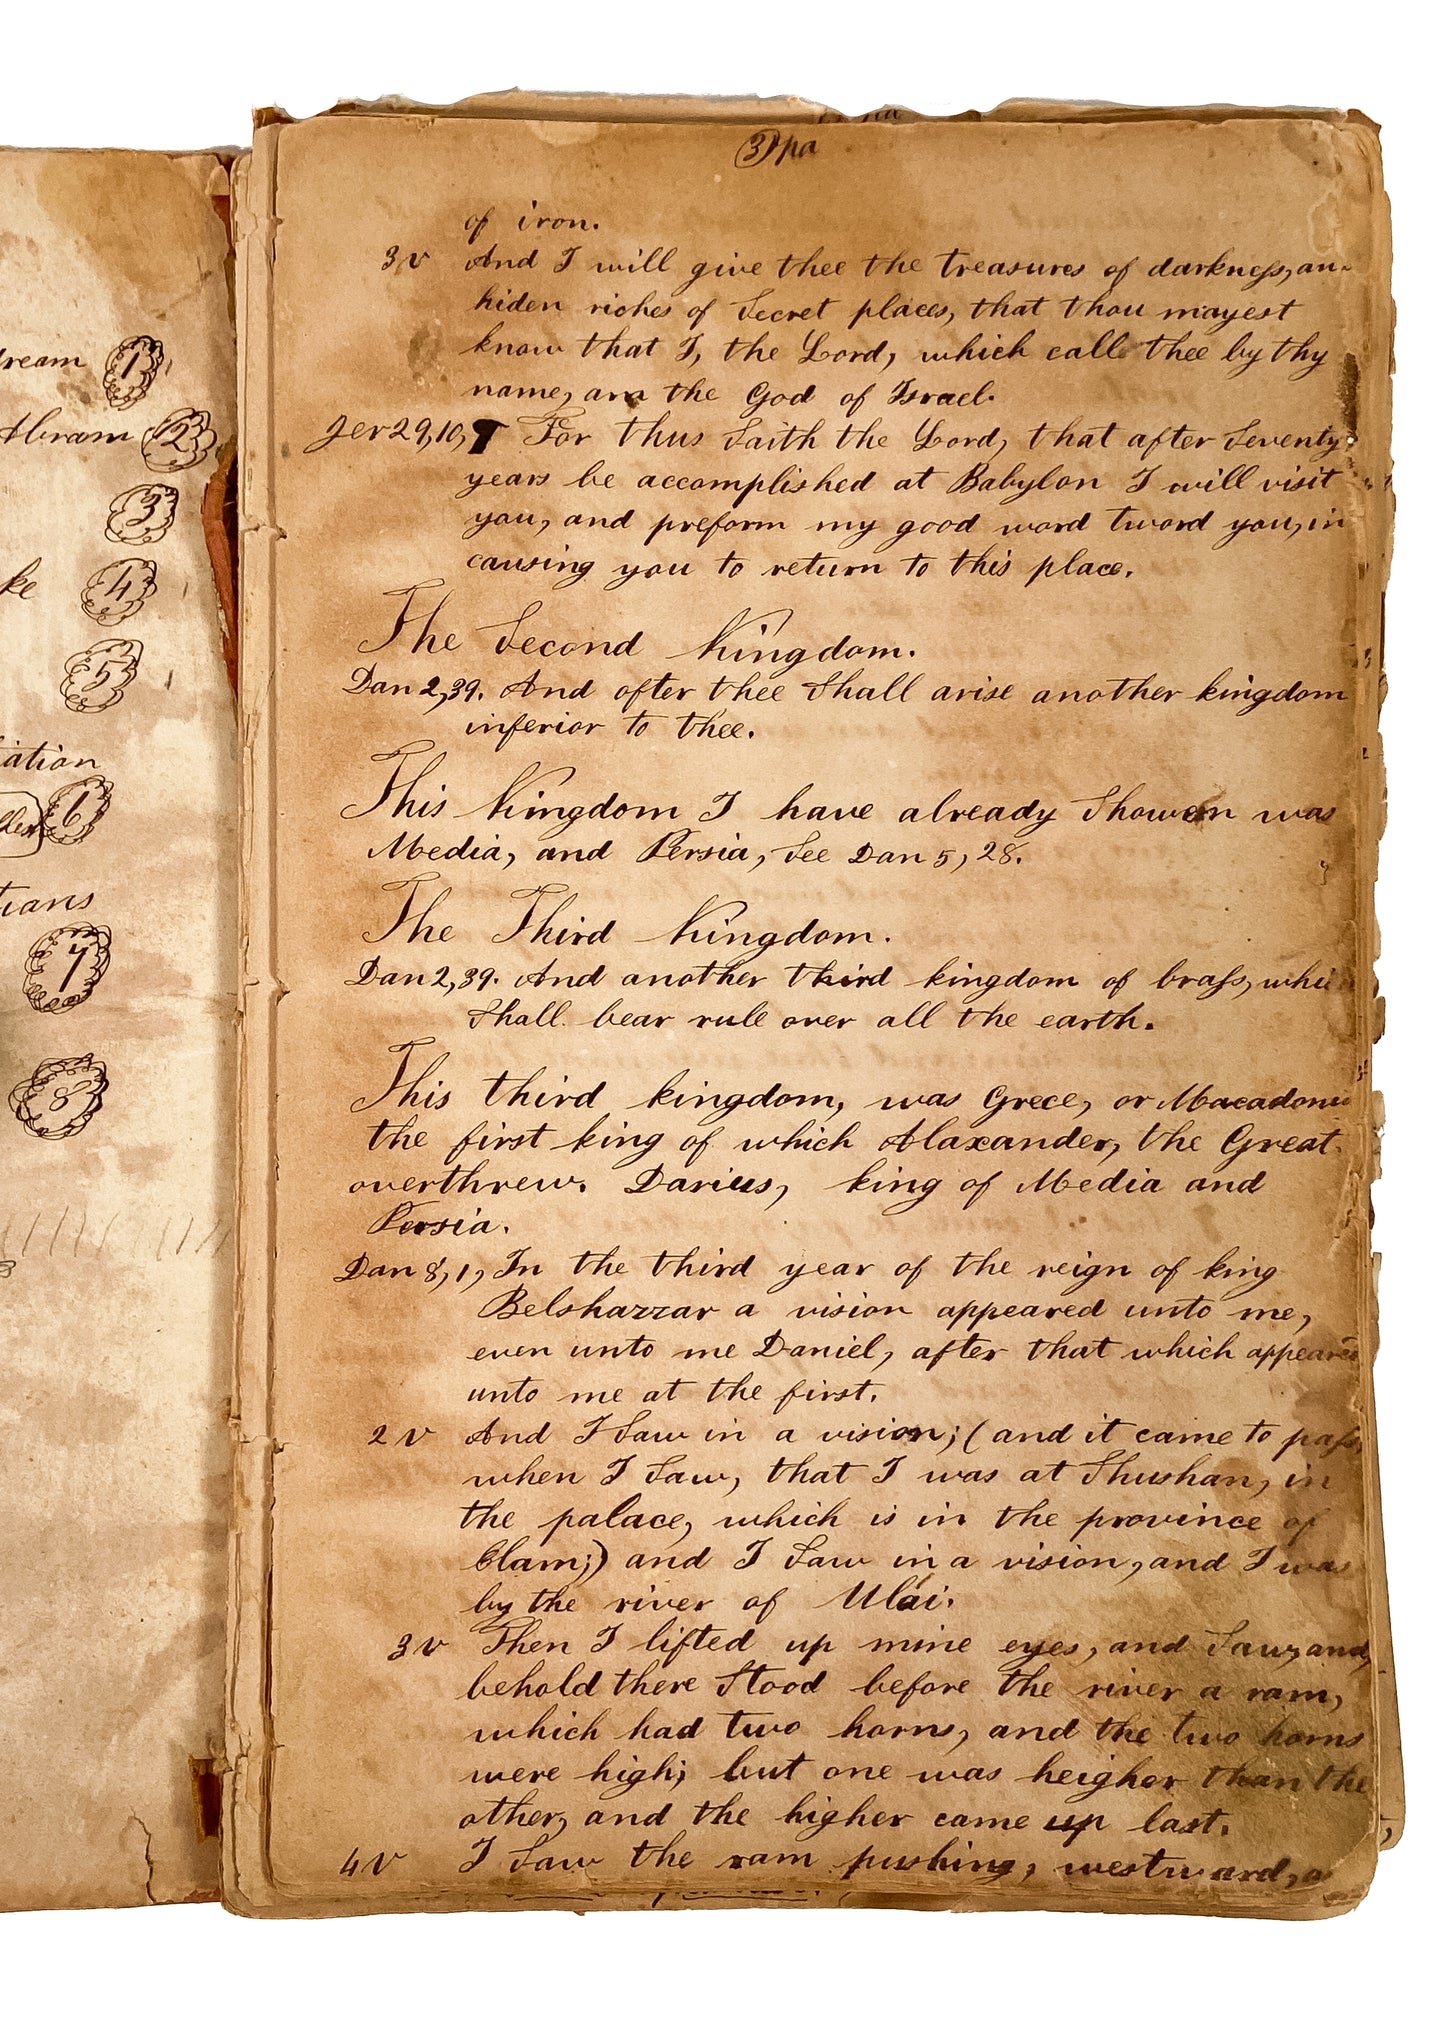 dream 1
Abram 2
3
ke 4
5
ation
6
tians
7
8
3 pa
of iron.
3 v And I will give thee the treasures of darkness, an
hiden riches of Secret places, that thou mayest
know that I, the Lord, which call thee by thy
name, am the God of Israel.
Jer 29,10, For thus Saith the Lord, that after Seventy
years be accomplished at Babylon I will visit
you, and preform my good word tword you, in
causing you to return to this place.
The Second Kingdom.
Dan 2,39. And after thee Shall arise another kingdom
inferior to thee.
This Kingdom I have already Showen was
Media, and Persia, See Dan 5, 28.
The Third Kingdom.
Dan 2,39. And another third kingdom of brass, whi
Shall bear rule over all the earth.
This third kingdom, was Grece, or Macadoni
the first king of which Alaxander, the Great
overthrew. Darius, king of Media and
Persia.
Dan 8,1, In the third year of the reign of king
Belshazzar a vision appeared unto me,
even unto me Daniel, after that which appeared
unto me at the first.
2 v And I Saw in a vision; (and it came to pass,
when I Saw, that I was at Shushan, in
the palace, which is in the province of
Elam;) and I Saw in a vision, and I was
by the river of Ulai.
3 v Then I lifted up mine eyes, and Saw, and,
behold there Stood before the river a ram,
which had two horns, and the two horns
were high; but one was heigher than the
other, and the higher came up last.
4 v I Saw the ram pushing, westward, a